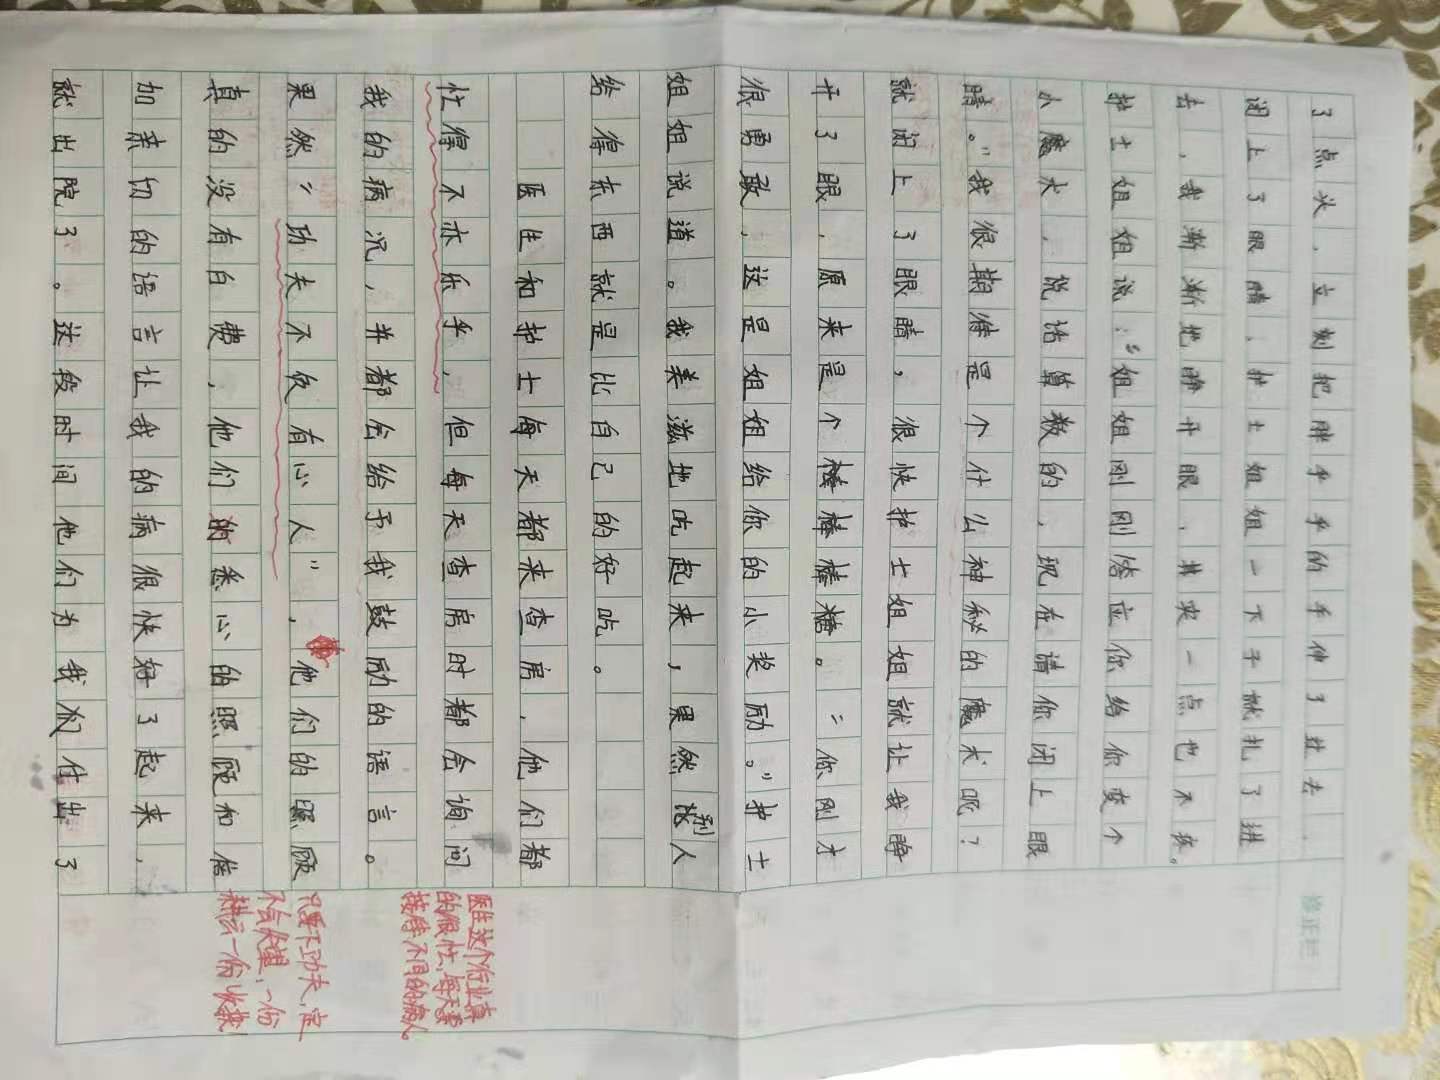 了点头，立刻把胖乎乎的手伸了过去，
闭上了眼睛，护士姐姐一下子就扎了进
去，我渐渐地睁开眼，其实一点也不疼。
护士姐姐说：“姐姐刚刚答应你给你变个
小魔术，说话算数的，现在请你闭上眼
睛。”我很期待是个什么神秘的魔术呢？
就闭上了眼睛，很快护士姐姐就让我睁
开了眼，原来是个棒棒糖。“你刚才
很勇敢，这是姐姐给你的小奖励。”护士
姐姐说道。我美滋滋地吃起来，果然别人
给得东西就是比自己的好吃。
医生和护士每天都来查房，他们都
忙得不亦乐乎，但每天查房时都会询问
我的病况，并都会给予我鼓励的语言。
果然“功夫不负有心人”，他们的照顾
真的没有白费，他们的悉心的照顾和倍
加亲切的语言让我的病很快好了起来，
就出院了。这段时间他们为我们付出了
修正栏
医生这个行业真
的很忙，每天要
接待不同的病人。
只要下功夫，定
不会失望，一份
耕耘一份收获